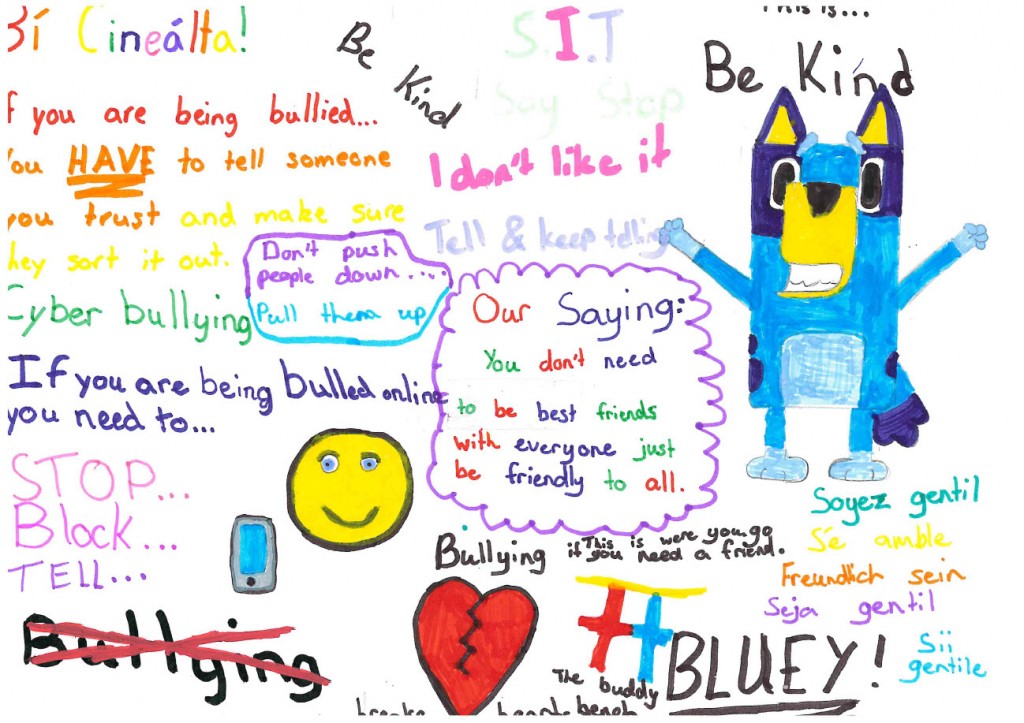 Bí Cineálta!
If you are being bullied...
You HAVE to tell someone
you trust and make sure
they sort it out.
Don't push
people down....
Pull them up
Cyber bullying
If you are being bulled online
you need to...
STOP...
Block...
TELL...
Bullying
Be Kind
S.I.T
Say Stop
I don't like it
Tell & keep telling
Our Saying:
You don't need
to be best friends
with everyone just
be friendly to all.
Bullying
breaks hearts
This is were you go
if you need a friend.
The buddy
bench
This is...
Be Kind
BLUEY!
Soyez gentil
Sé amble
Freundlich sein
Seja gentil
Sii
gentile